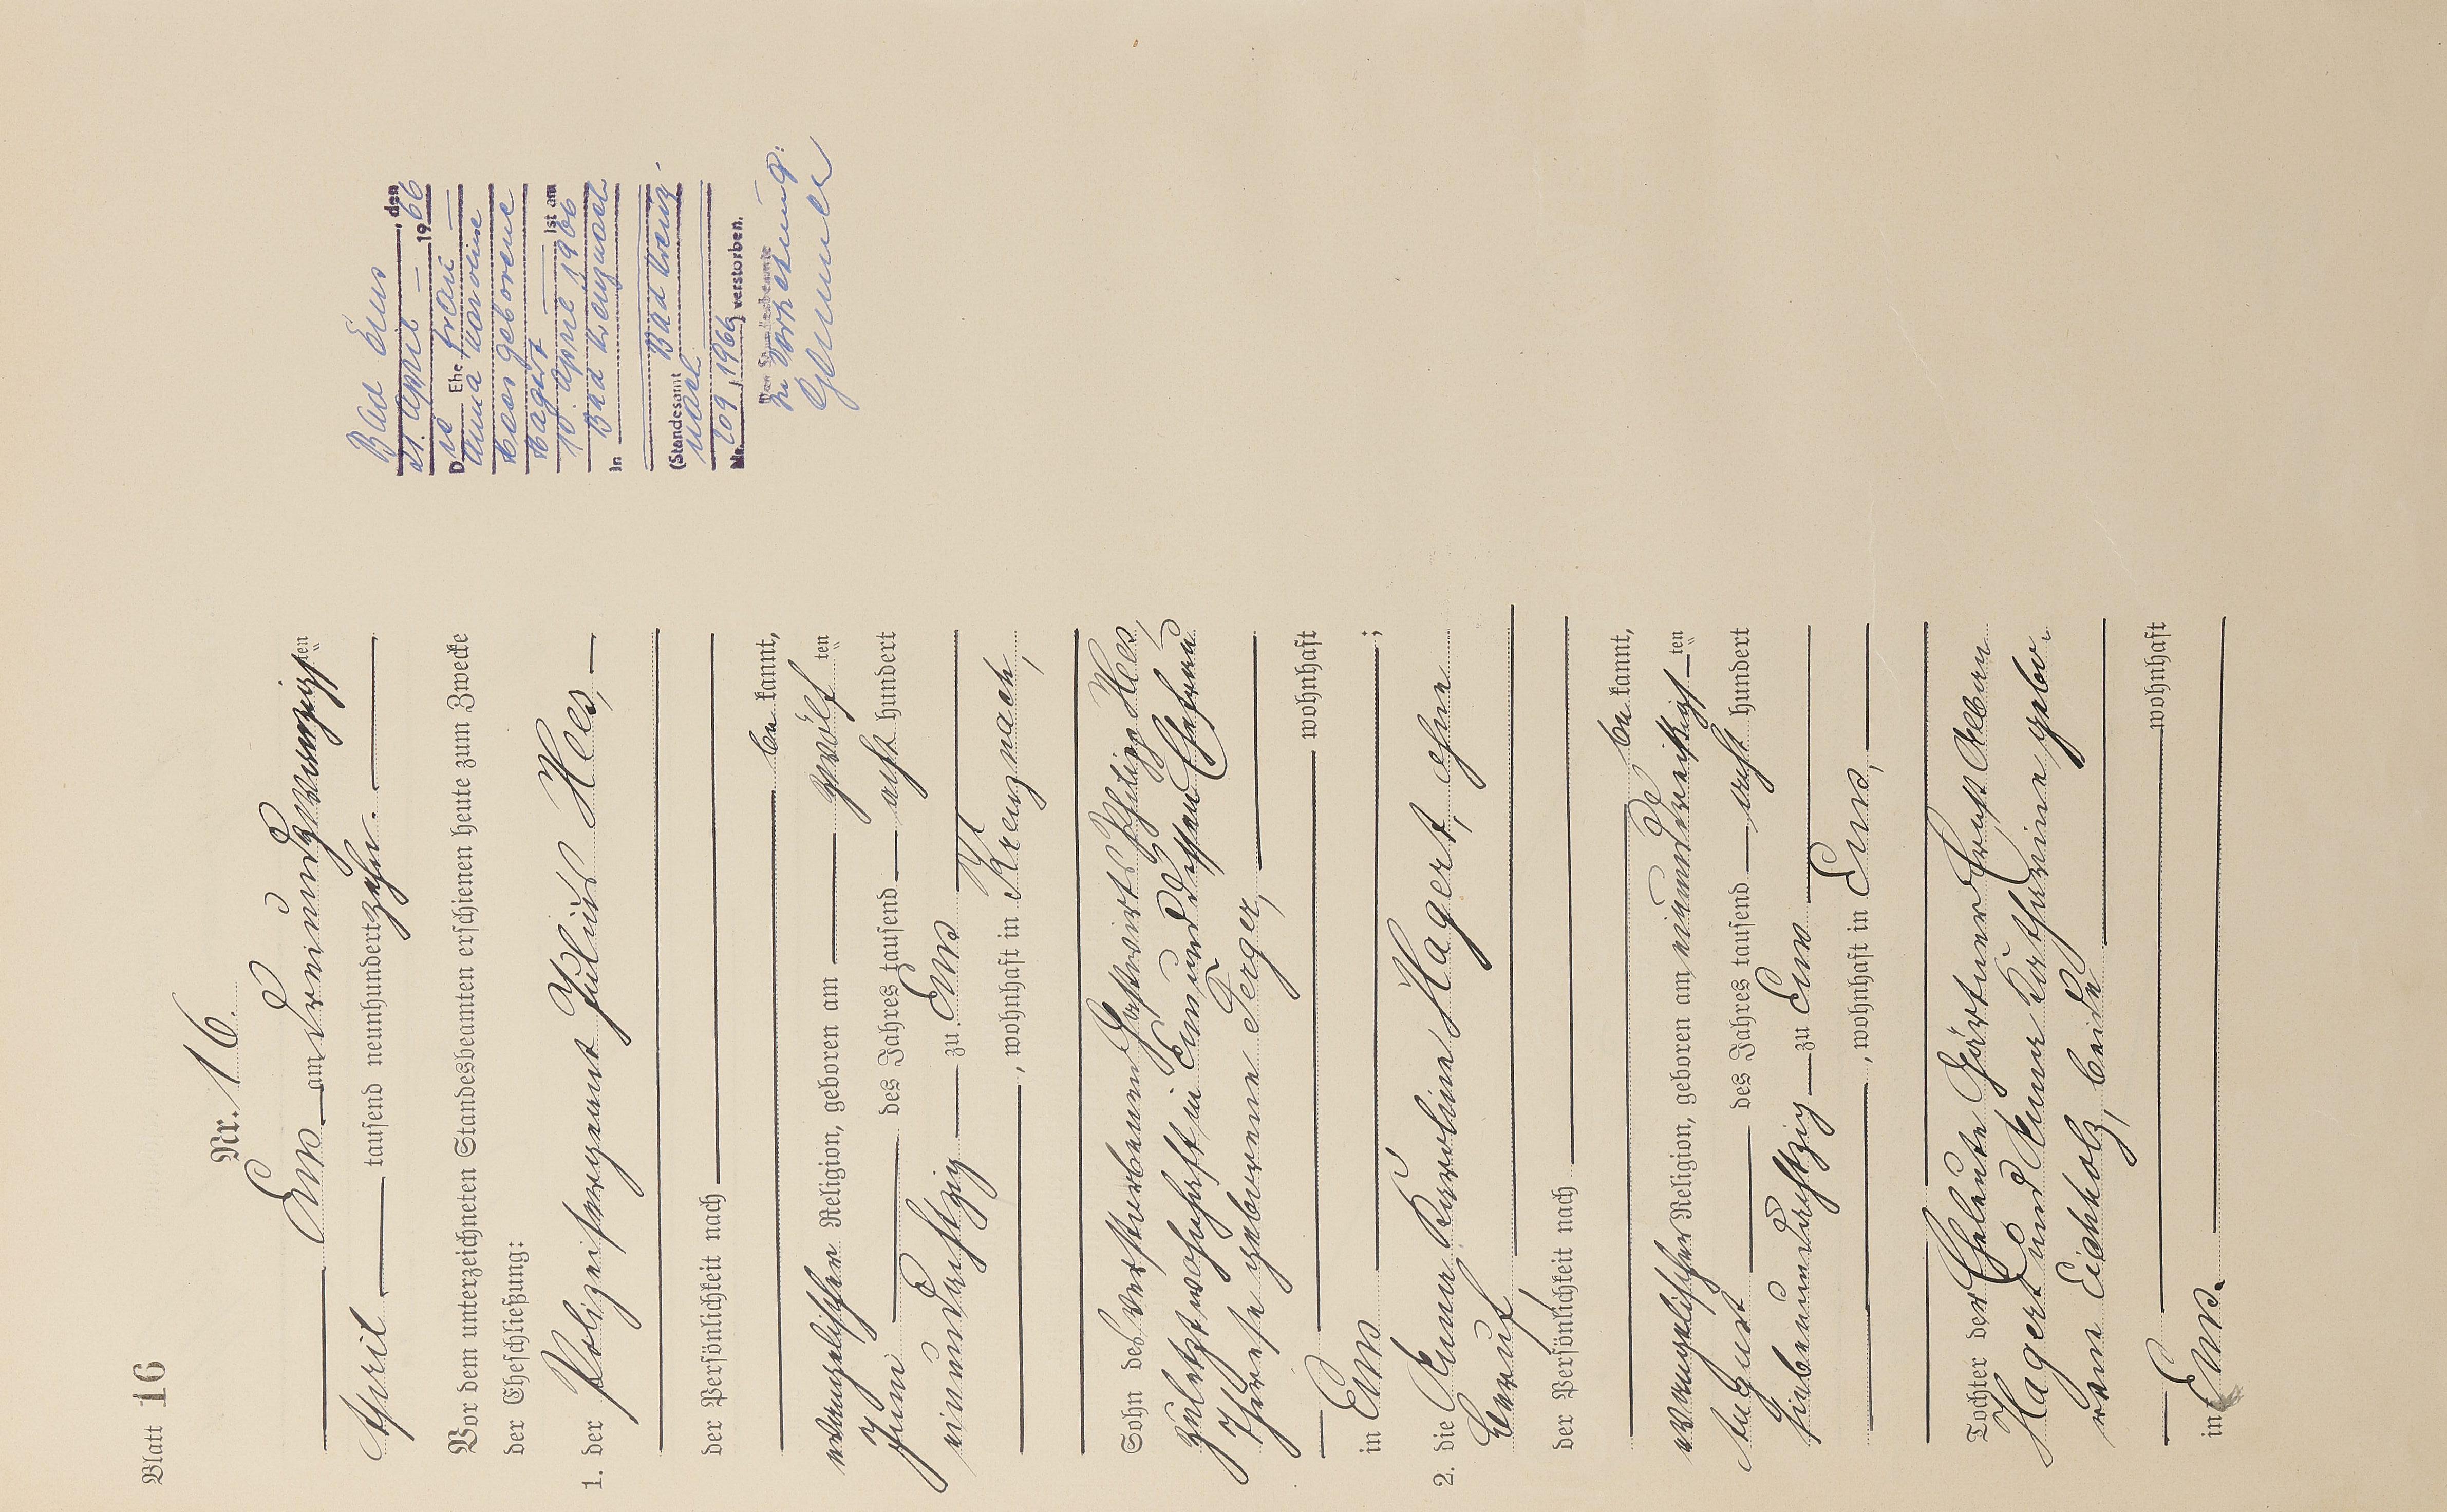 Blatt 16
Nr. 16.
Ems am dreiundzwanzigsten
April tausend neunhundertzehn.
Vor dem unterzeichneten Standesbeamten erschienen heute zum Zwecke
der Eheschließung:
1. der Polizeisergeant Julius Hees,
der Persönlichkeit nach
be kannt,
evangelischer Religion, geboren am zwölf ten
Juni des Jahres tausend acht hundert
einundachtzig zu Ems
, wohnhaft in Kreuznach,
Sohn des verstorbenen Gastwirts Philipp Hees,
zuletzt wohnhaft in Ems und dessen Ehefrau
Therese geborene Jerger,
wohnhaft
in Ems ;
2. die Anna Karoline Hagert, ohne
Beruf,
der Persönlichkeit nach
be kannt,
evangelischer Religion, geboren am einunddreißigsten
August des Jahres tausend acht hundert
siebenundachtzig zu Ems
, wohnhaft in Ems,
Tochter der Eheleute Gärtner Ernst Albin
Hagert und Anna Katharine gebo-
rene Eichholz, beide
wohnhaft
in Ems.
Bad Ems, den
21. April 1966
Die Ehefrau
Anna Karoline
Hees geborene
Hagert ist am
10. April 1966
in Bad Kreuznach
(Standesamt Bad Kreuz-
nach
Nr. 209, 1966) verstorben.
Der Standesbeamte
In Vertretung: